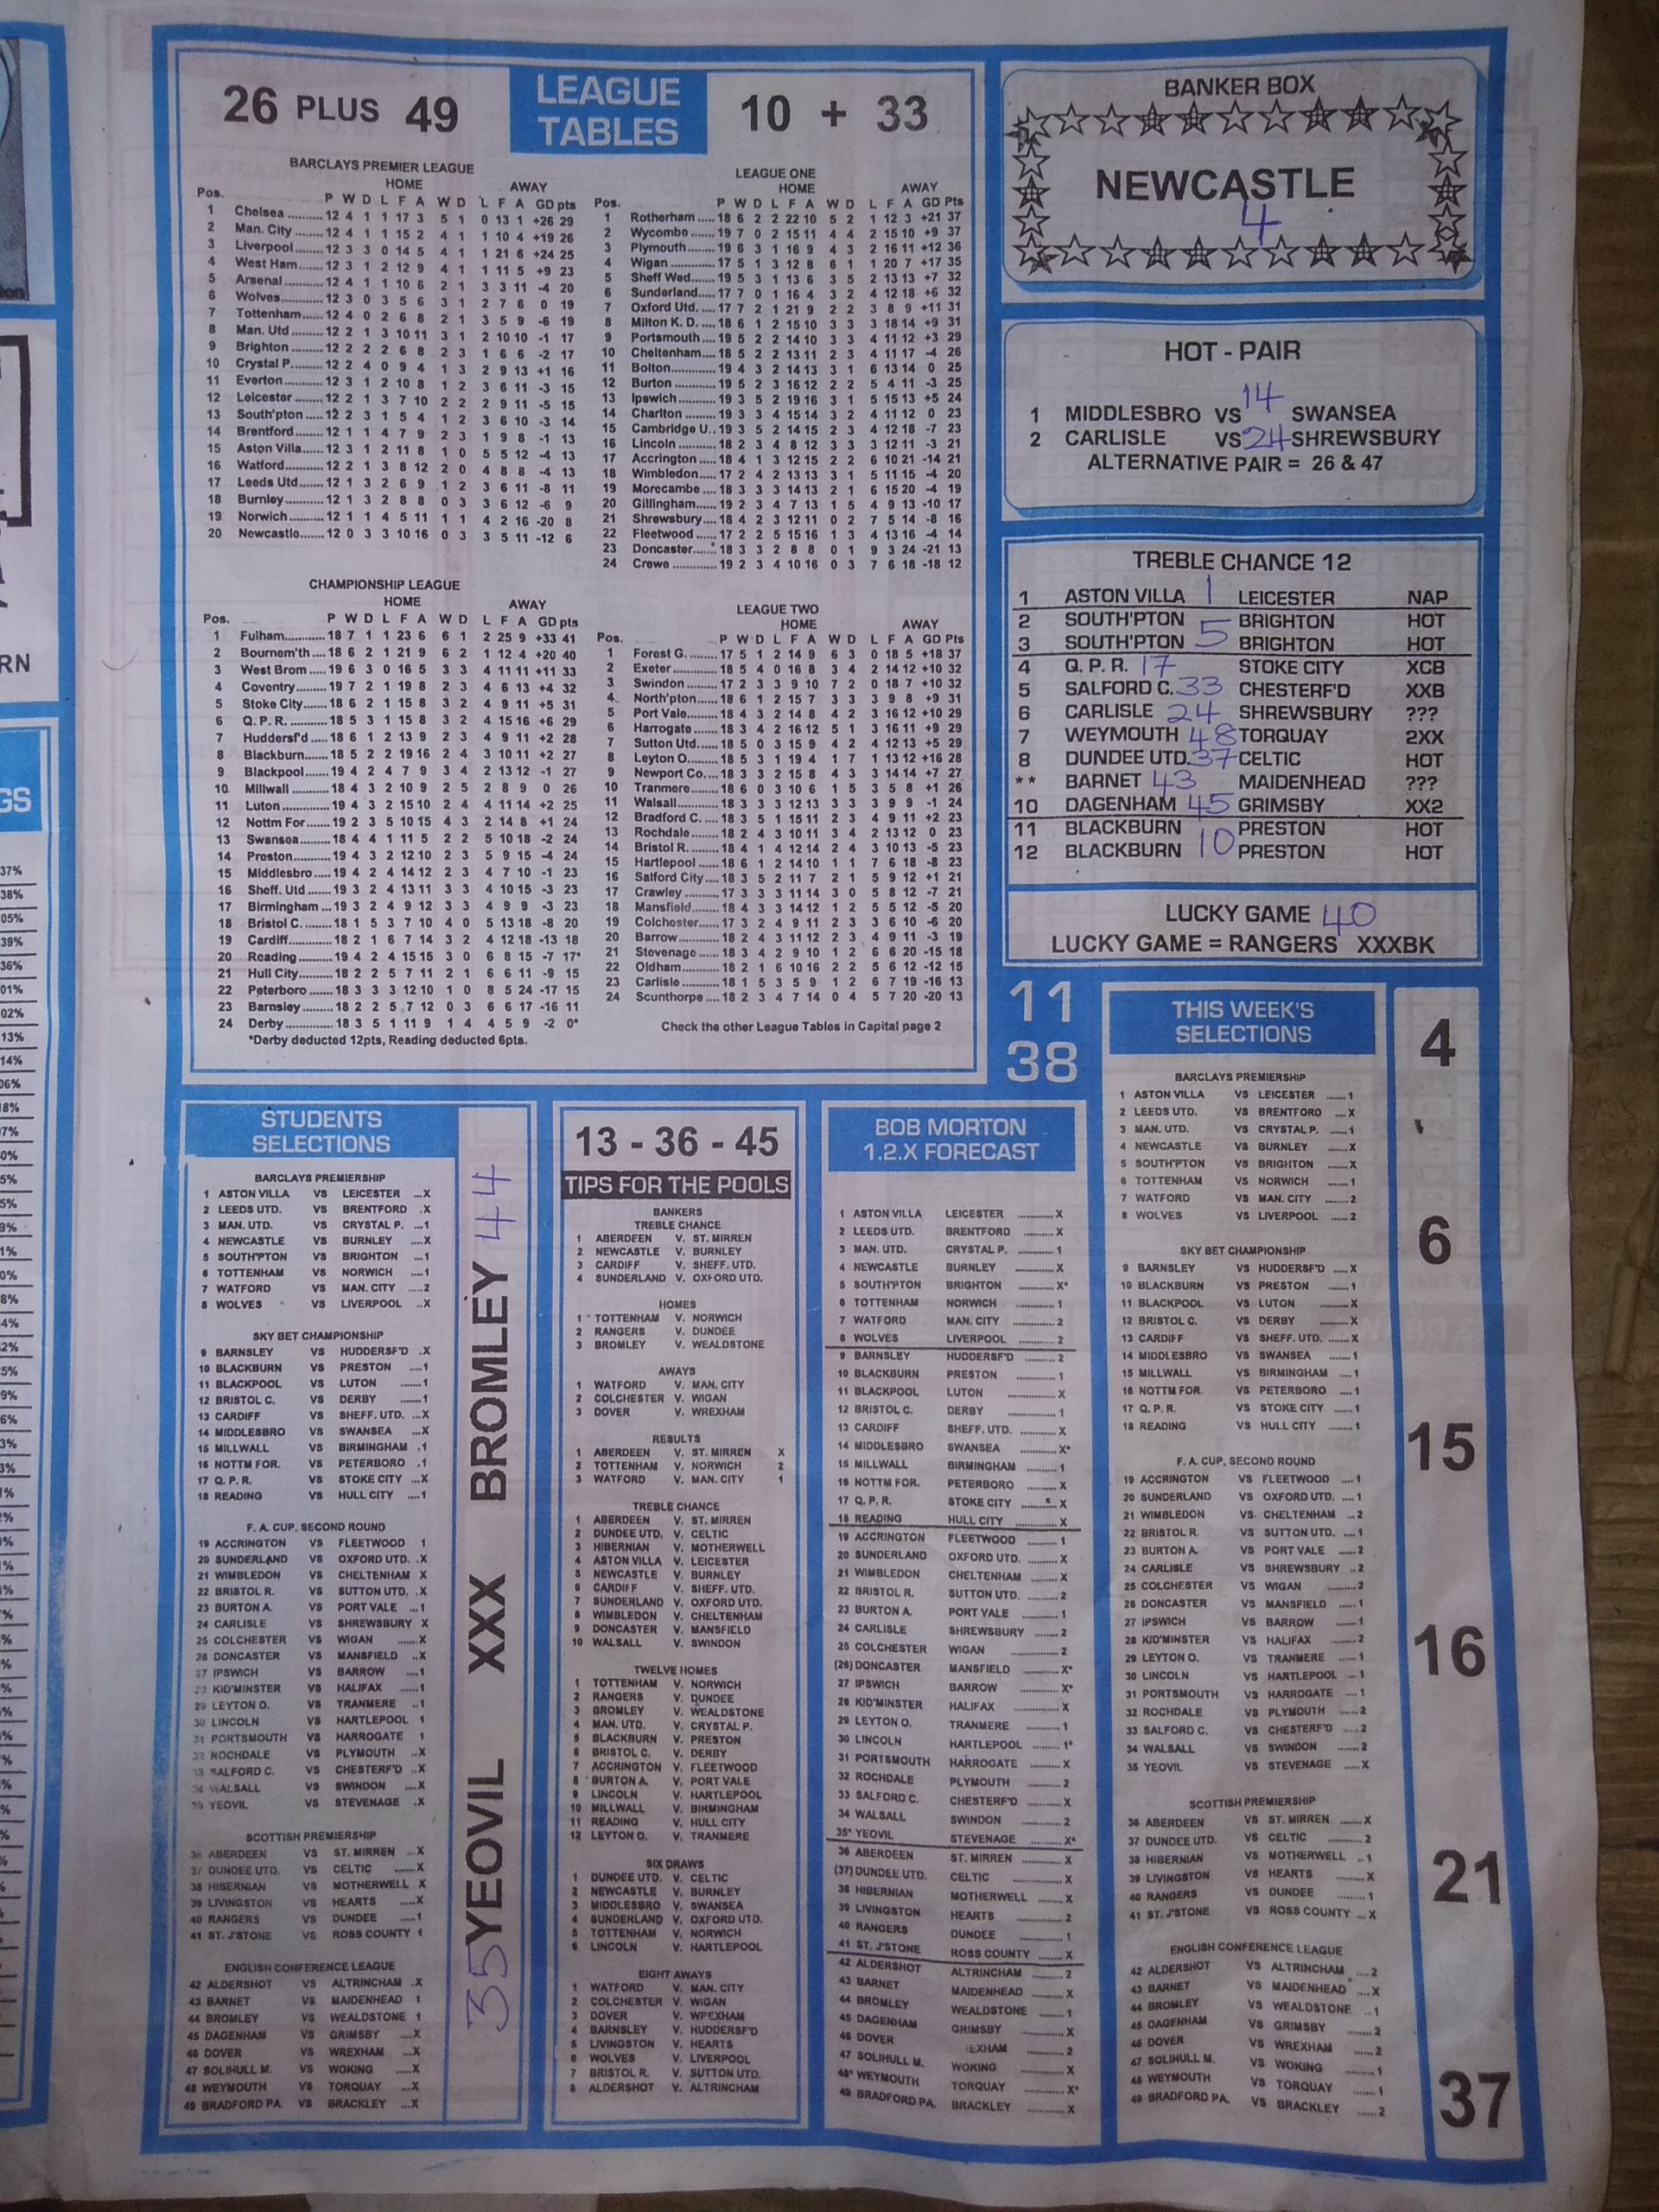 26 PLUS 49
LEAGUE TABLES
10 + 33
BARCLAYS PREMIER LEAGUE
HOME AWAY
Pos. P W D L F A W D L F A GD pts
1 Chelsea 12 4 1 1 17 3 5 1 0 13 1 +26 29
2 Man. City 12 4 1 1 15 2 4 1 1 10 4 +19 26
3 Liverpool 12 3 3 0 14 5 4 1 1 21 6 +24 25
4 West Ham 12 3 1 2 12 9 4 1 1 11 5 +9 23
5 Arsenal 12 4 1 1 10 6 2 1 3 3 11 -4 20
6 Wolves 12 3 0 3 5 6 3 1 2 7 6 0 19
7 Tottenham 12 4 0 2 6 8 2 1 3 5 9 -6 19
8 Man. Utd 12 2 1 3 10 11 3 1 2 10 10 -1 17
9 Brighton 12 2 2 2 6 8 2 3 1 6 6 -2 17
10 Crystal P. 12 2 4 0 9 4 1 3 2 9 13 +1 16
11 Everton 12 3 1 2 10 8 1 2 3 6 11 -3 15
12 Leicester 12 2 1 3 7 10 2 2 2 9 11 -5 15
13 South'pton 12 2 3 1 5 4 1 2 3 6 10 -3 14
14 Brentford 12 1 1 4 7 9 2 3 1 9 8 -1 13
15 Aston Villa 12 3 1 2 11 8 1 0 5 5 12 -4 13
16 Watford 12 2 1 3 8 12 2 0 4 8 8 -4 13
17 Leeds Utd 12 1 3 2 6 9 1 2 3 6 11 -8 11
18 Burnley 12 1 3 2 8 8 0 3 3 6 12 -6 9
19 Norwich 12 1 1 4 5 11 1 1 4 2 16 -20 8
20 Newcastle 12 0 3 3 10 16 0 3 3 5 11 -12 6
LEAGUE ONE
HOME AWAY
Pos. P W D L F A W D L F A GD Pts
1 Rotherham 18 6 2 2 22 10 5 2 1 12 3 +21 37
2 Wycombe 19 7 0 2 15 11 4 4 2 15 10 +9 37
3 Plymouth 19 6 3 1 16 9 4 3 2 16 11 +12 36
4 Wigan 17 5 1 3 12 8 6 1 1 20 7 +17 35
5 Sheff Wed 19 5 3 1 13 6 3 5 2 13 13 +7 32
6 Sunderland 17 7 0 1 16 4 3 2 4 12 18 +6 32
7 Oxford Utd. 17 7 2 1 21 9 2 2 3 8 9 +11 31
8 Milton K. D. 18 6 1 2 15 10 3 3 3 18 14 +9 31
9 Portsmouth 19 5 2 2 14 10 3 3 4 11 12 +3 29
10 Cheltenham 18 5 2 2 13 11 2 3 4 11 17 -4 26
11 Bolton 19 4 3 2 14 13 3 1 6 13 14 0 25
12 Burton 19 5 2 3 16 12 2 2 5 4 11 -3 25
13 Ipswich 19 3 5 2 19 16 3 1 5 15 13 +5 24
14 Charlton 19 3 3 4 15 14 3 2 4 11 12 0 23
15 Cambridge U. 19 3 5 2 14 15 2 3 4 12 18 -7 23
16 Lincoln 18 2 3 4 8 12 3 3 3 12 11 -3 21
17 Accrington 18 4 1 3 12 15 2 2 6 10 21 -14 21
18 Wimbledon 17 2 4 2 13 13 3 1 5 11 15 -4 20
19 Morecambe 18 3 3 3 14 13 2 1 6 15 20 -4 19
20 Gillingham 19 2 3 4 7 13 1 5 4 9 13 -10 17
21 Shrewsbury 18 4 2 3 12 11 0 2 7 5 14 -8 16
22 Fleetwood 17 2 2 5 15 16 1 3 4 13 16 -4 14
23 Doncaster 18 3 3 2 8 8 0 1 9 3 24 -21 13
24 Crewe 19 2 3 4 10 16 0 3 7 6 18 -18 12
CHAMPIONSHIP LEAGUE
HOME AWAY
Pos. P W D L F A W D L F A GD pts
1 Fulham 18 7 1 1 23 6 6 1 2 25 9 +33 41
2 Bournem'th 18 6 2 1 21 9 6 2 1 12 4 +20 40
3 West Brom 19 6 3 0 16 5 3 3 4 11 11 +11 33
4 Coventry 19 7 2 1 19 8 2 3 4 6 13 +4 32
5 Stoke City 18 6 2 1 15 8 3 2 4 9 11 +5 31
6 Q. P. R. 18 5 3 1 15 8 3 2 4 15 16 +6 29
7 Huddersf'd 18 6 1 2 13 9 2 3 4 9 11 +2 28
8 Blackburn 18 5 2 2 19 16 2 4 3 10 11 +2 27
9 Blackpool 19 4 2 4 7 9 3 4 2 13 12 -1 27
10 Millwall 18 4 3 2 10 9 2 5 2 8 9 0 26
11 Luton 19 4 3 2 15 10 2 4 4 11 14 +2 25
12 Nottm For 19 2 3 5 10 15 4 3 2 14 8 +1 24
13 Swansea 18 4 4 1 11 5 2 2 5 10 18 -2 24
14 Preston 19 4 3 2 12 10 2 3 5 9 15 -4 24
15 Middlesbro 19 4 2 4 14 12 2 3 4 7 10 -1 23
16 Sheff. Utd 19 3 2 4 13 11 3 3 4 10 15 -3 23
17 Birmingham 19 3 2 4 9 12 3 3 4 9 9 -3 23
18 Bristol C. 18 1 5 3 7 10 4 0 5 13 18 -8 20
19 Cardiff 18 2 1 6 7 14 3 2 4 12 18 -13 18
20 Reading 19 4 2 4 15 15 3 0 6 8 15 -7 17*
21 Hull City 18 2 2 5 7 11 2 1 6 6 11 -9 15
22 Peterboro 18 3 3 3 12 10 1 0 8 5 24 -17 15
23 Barnsley 18 2 2 5 7 12 0 3 6 6 17 -16 11
24 Derby 18 3 5 1 11 9 1 4 4 5 9 -2 0*
*Derby deducted 12pts, Reading deducted 6pts.
LEAGUE TWO
HOME AWAY
Pos. P W D L F A W D L F A GD Pts
1 Forest G. 17 5 1 2 14 9 6 3 0 18 5 +18 37
2 Exeter 18 5 4 0 16 8 3 4 2 14 12 +10 32
3 Swindon 17 2 3 3 9 10 7 2 0 18 7 +10 32
4 North'pton 18 6 1 2 15 7 3 3 3 9 8 +9 31
5 Port Vale 18 4 3 2 14 8 4 2 3 16 12 +10 29
6 Harrogate 18 3 4 2 16 12 5 1 3 16 11 +9 29
7 Sutton Utd 18 5 0 3 15 9 4 2 4 12 13 +5 29
8 Leyton O. 18 5 3 1 19 4 1 7 1 13 12 +16 28
9 Newport Co. 18 3 3 2 15 8 4 3 3 14 14 +7 27
10 Tranmere 18 6 0 3 10 6 1 5 3 5 8 +1 26
11 Walsall 18 3 3 3 12 13 3 3 3 9 9 -1 24
12 Bradford C. 18 3 5 1 15 11 2 3 4 9 11 +2 23
13 Rochdale 18 2 4 3 10 11 3 4 2 13 12 0 23
14 Bristol R. 18 4 1 4 12 14 2 4 3 10 13 -5 23
15 Hartlepool 18 6 1 2 14 10 1 1 7 6 18 -8 23
16 Salford City 18 3 5 2 11 7 2 1 5 9 12 +1 21
17 Crawley 17 3 3 3 11 14 3 0 5 8 12 -7 21
18 Mansfield 18 4 3 3 14 12 1 2 5 5 12 -5 20
19 Colchester 17 3 2 4 9 11 2 3 3 6 10 -6 20
20 Barrow 18 2 4 3 11 12 2 3 4 9 11 -3 19
21 Stevenage 18 3 4 2 9 10 1 2 6 6 20 -15 18
22 Oldham 18 2 1 6 10 16 2 2 5 6 12 -12 15
23 Carlisle 18 1 5 3 5 9 1 2 6 7 19 -16 13
24 Scunthorpe 18 2 3 4 7 14 0 4 5 7 20 -20 13
Check the other League Tables in Capital page 2
BANKER BOX
NEWCASTLE
4
HOT - PAIR
1 MIDDLESBRO VS 14 SWANSEA
2 CARLISLE VS 24 SHREWSBURY
ALTERNATIVE PAIR = 26 & 47
TREBLE CHANCE 12
1 ASTON VILLA 1 LEICESTER NAP
2 SOUTH'PTON BRIGHTON HOT
3 SOUTH'PTON 5 BRIGHTON HOT
4 Q. P. R. 17 STOKE CITY XCB
5 SALFORD C. 33 CHESTERF'D XXB
6 CARLISLE 24 SHREWSBURY ???
7 WEYMOUTH 48 TORQUAY 2XX
8 DUNDEE UTD. 37 CELTIC HOT
** BARNET 43 MAIDENHEAD ???
10 DAGENHAM 45 GRIMSBY XX2
11 BLACKBURN PRESTON HOT
12 BLACKBURN 10 PRESTON HOT
LUCKY GAME 40
LUCKY GAME = RANGERS XXXBK
11
38
STUDENTS SELECTIONS
BARCLAYS PREMIERSHIP
1 ASTON VILLA VS LEICESTER ...X
2 LEEDS UTD. VS BRENTFORD .X
3 MAN. UTD. VS CRYSTAL P. ...1
4 NEWCASTLE VS BURNLEY ....X
5 SOUTH'PTON VS BRIGHTON ...1
6 TOTTENHAM VS NORWICH ....1
7 WATFORD VS MAN. CITY .....2
8 WOLVES VS LIVERPOOL ..X
SKY BET CHAMPIONSHIP
9 BARNSLEY VS HUDDERSF'D .X
10 BLACKBURN VS PRESTON ....1
11 BLACKPOOL VS LUTON ......1
12 BRISTOL C. VS DERBY ......1
13 CARDIFF VS SHEFF. UTD. ...X
14 MIDDLESBRO VS SWANSEA ...X
15 MILLWALL VS BIRMINGHAM .1
16 NOTTM FOR. VS PETERBORO .1
17 Q. P. R. VS STOKE CITY ...X
18 READING VS HULL CITY ....1
F. A. CUP, SECOND ROUND
19 ACCRINGTON VS FLEETWOOD 1
20 SUNDERLAND VS OXFORD UTD. .X
21 WIMBLEDON VS CHELTENHAM X
22 BRISTOL R. VS SUTTON UTD. .X
23 BURTON A. VS PORT VALE ...1
24 CARLISLE VS SHREWSBURY X
25 COLCHESTER VS WIGAN .......X
26 DONCASTER VS MANSFIELD ..X
27 IPSWICH VS BARROW ....1
28 KID'MINSTER VS HALIFAX .....1
29 LEYTON O. VS TRANMERE ..1
30 LINCOLN VS HARTLEPOOL 1
31 PORTSMOUTH VS HARROGATE 1
32 ROCHDALE VS PLYMOUTH ..X
33 SALFORD C. VS CHESTERF'D ..X
34 WALSALL VS SWINDON ....X
35 YEOVIL VS STEVENAGE .X
SCOTTISH PREMIERSHIP
36 ABERDEEN VS ST. MIRREN ...X
37 DUNDEE UTD. VS CELTIC ......X
38 HIBERNIAN VS MOTHERWELL X
39 LIVINGSTON VS HEARTS ....X
40 RANGERS VS DUNDEE .....1
41 ST. J'STONE VS ROSS COUNTY 1
ENGLISH CONFERENCE LEAGUE
42 ALDERSHOT VS ALTRINCHAM .X
43 BARNET VS MAIDENHEAD 1
44 BROMLEY VS WEALDSTONE 1
45 DAGENHAM VS GRIMSBY ....X
46 DOVER VS WREXHAM ...X
47 SOLIHULL M. VS WOKING ....X
48 WEYMOUTH VS TORQUAY ...X
49 BRADFORD PA VS BRACKLEY ...X
35 YEOVIL XXX BROMLEY 44
13 - 36 - 45
TIPS FOR THE POOLS
BANKERS
TREBLE CHANCE
1 ABERDEEN V. ST. MIRREN
2 NEWCASTLE V. BURNLEY
3 CARDIFF V. SHEFF. UTD.
4 SUNDERLAND V. OXFORD UTD.
HOMES
1 TOTTENHAM V. NORWICH
2 RANGERS V. DUNDEE
3 BROMLEY V. WEALDSTONE
AWAYS
1 WATFORD V. MAN. CITY
2 COLCHESTER V. WIGAN
3 DOVER V. WREXHAM
RESULTS
1 ABERDEEN V. ST. MIRREN X
2 TOTTENHAM V. NORWICH 2
3 WATFORD V. MAN. CITY 1
TREBLE CHANCE
1 ABERDEEN V. ST. MIRREN
2 DUNDEE UTD. V. CELTIC
3 HIBERNIAN V. MOTHERWELL
4 ASTON VILLA V. LEICESTER
5 NEWCASTLE V. BURNLEY
6 CARDIFF V. SHEFF. UTD.
7 SUNDERLAND V. OXFORD UTD.
8 WIMBLEDON V. CHELTENHAM
9 DONCASTER V. MANSFIELD
10 WALSALL V. SWINDON
TWELVE HOMES
1 TOTTENHAM V. NORWICH
2 RANGERS V. DUNDEE
3 BROMLEY V. WEALDSTONE
4 MAN. UTD. V. CRYSTAL P.
5 BLACKBURN V. PRESTON
6 BRISTOL C. V. DERBY
7 ACCRINGTON V. FLEETWOOD
8 BURTON A. V. PORT VALE
9 LINCOLN V. HARTLEPOOL
10 MILLWALL V. BIRMINGHAM
11 READING V. HULL CITY
12 LEYTON O. V. TRANMERE
SIX DRAWS
1 DUNDEE UTD. V. CELTIC
2 NEWCASTLE V. BURNLEY
3 MIDDLESBRO V. SWANSEA
4 SUNDERLAND V. OXFORD UTD.
5 TOTTENHAM V. NORWICH
6 LINCOLN V. HARTLEPOOL
EIGHT AWAYS
1 WATFORD V. MAN. CITY
2 COLCHESTER V. WIGAN
3 DOVER V. WREXHAM
4 BARNSLEY V. HUDDERSF'D
5 LIVINGSTON V. HEARTS
6 WOLVES V. LIVERPOOL
7 BRISTOL R. V. SUTTON UTD.
8 ALDERSHOT V. ALTRINCHAM
BOB MORTON
1.2.X FORECAST
1 ASTON VILLA LEICESTER X
2 LEEDS UTD. BRENTFORD X
3 MAN. UTD. CRYSTAL P. 1
4 NEWCASTLE BURNLEY X
5 SOUTH'PTON BRIGHTON X*
6 TOTTENHAM NORWICH 1
7 WATFORD MAN. CITY 2
8 WOLVES LIVERPOOL 2
9 BARNSLEY HUDDERSF'D 2
10 BLACKBURN PRESTON 1
11 BLACKPOOL LUTON X
12 BRISTOL C. DERBY 1
13 CARDIFF SHEFF. UTD. X
14 MIDDLESBRO SWANSEA X*
15 MILLWALL BIRMINGHAM 1
16 NOTTM FOR. PETERBORO X
17 Q. P. R. STOKE CITY X
18 READING HULL CITY X
19 ACCRINGTON FLEETWOOD 1
20 SUNDERLAND OXFORD UTD. X
21 WIMBLEDON CHELTENHAM X
22 BRISTOL R. SUTTON UTD. 2
23 BURTON A. PORT VALE 1
24 CARLISLE SHREWSBURY 2
25 COLCHESTER WIGAN 2
(26) DONCASTER MANSFIELD X*
27 IPSWICH BARROW X*
28 KID'MINSTER HALIFAX X
29 LEYTON O. TRANMERE 1
30 LINCOLN HARTLEPOOL 1*
31 PORTSMOUTH HARROGATE X
32 ROCHDALE PLYMOUTH 2
33 SALFORD C. CHESTERF'D X
34 WALSALL SWINDON 2
35* YEOVIL STEVENAGE X*
36 ABERDEEN ST. MIRREN X
(37) DUNDEE UTD. CELTIC X
38 HIBERNIAN MOTHERWELL X
39 LIVINGSTON HEARTS 2
40 RANGERS DUNDEE 1
41 ST. J'STONE ROSS COUNTY X
42 ALDERSHOT ALTRINCHAM 2
43 BARNET MAIDENHEAD X
44 BROMLEY WEALDSTONE 1
45 DAGENHAM GRIMSBY X
46 DOVER EXHAM 2
47 SOLIHULL M. WOKING X
48* WEYMOUTH TORQUAY X*
49 BRADFORD PA. BRACKLEY X
THIS WEEK'S SELECTIONS
BARCLAYS PREMIERSHIP
1 ASTON VILLA VS LEICESTER 1
2 LEEDS UTD. VS BRENTFORD X
3 MAN. UTD. VS CRYSTAL P. 1
4 NEWCASTLE VS BURNLEY X
5 SOUTH'PTON VS BRIGHTON X
6 TOTTENHAM VS NORWICH 1
7 WATFORD VS MAN. CITY 2
8 WOLVES VS LIVERPOOL 2
SKY BET CHAMPIONSHIP
9 BARNSLEY VS HUDDERSF'D X
10 BLACKBURN VS PRESTON 1
11 BLACKPOOL VS LUTON X
12 BRISTOL C. VS DERBY X
13 CARDIFF VS SHEFF. UTD. X
14 MIDDLESBRO VS SWANSEA 1
15 MILLWALL VS BIRMINGHAM 1
16 NOTTM FOR. VS PETERBORO 1
17 Q. P. R. VS STOKE CITY 1
18 READING VS HULL CITY 1
F. A. CUP, SECOND ROUND
19 ACCRINGTON VS FLEETWOOD 1
20 SUNDERLAND VS OXFORD UTD. 1
21 WIMBLEDON VS CHELTENHAM 2
22 BRISTOL R. VS SUTTON UTD. 1
23 BURTON A. VS PORT VALE 2
24 CARLISLE VS SHREWSBURY 2
25 COLCHESTER VS WIGAN 2
26 DONCASTER VS MANSFIELD 1
27 IPSWICH VS BARROW 1
28 KID'MINSTER VS HALIFAX 2
29 LEYTON O. VS TRANMERE 1
30 LINCOLN VS HARTLEPOOL 1
31 PORTSMOUTH VS HARROGATE 1
32 ROCHDALE VS PLYMOUTH 2
33 SALFORD C. VS CHESTERF'D 2
34 WALSALL VS SWINDON 2
35 YEOVIL VS STEVENAGE X
SCOTTISH PREMIERSHIP
36 ABERDEEN VS ST. MIRREN X
37 DUNDEE UTD. VS CELTIC 2
38 HIBERNIAN VS MOTHERWELL 1
39 LIVINGSTON VS HEARTS X
40 RANGERS VS DUNDEE 1
41 ST. J'STONE VS ROSS COUNTY X
ENGLISH CONFERENCE LEAGUE
42 ALDERSHOT VS ALTRINCHAM 2
43 BARNET VS MAIDENHEAD X
44 BROMLEY VS WEALDSTONE 1
45 DAGENHAM VS GRIMSBY 2
46 DOVER VS WREXHAM 2
47 SOLIHULL M. VS WOKING 1
48 WEYMOUTH VS TORQUAY 1
49 BRADFORD PA. VS BRACKLEY 2
4
6
15
16
21
37